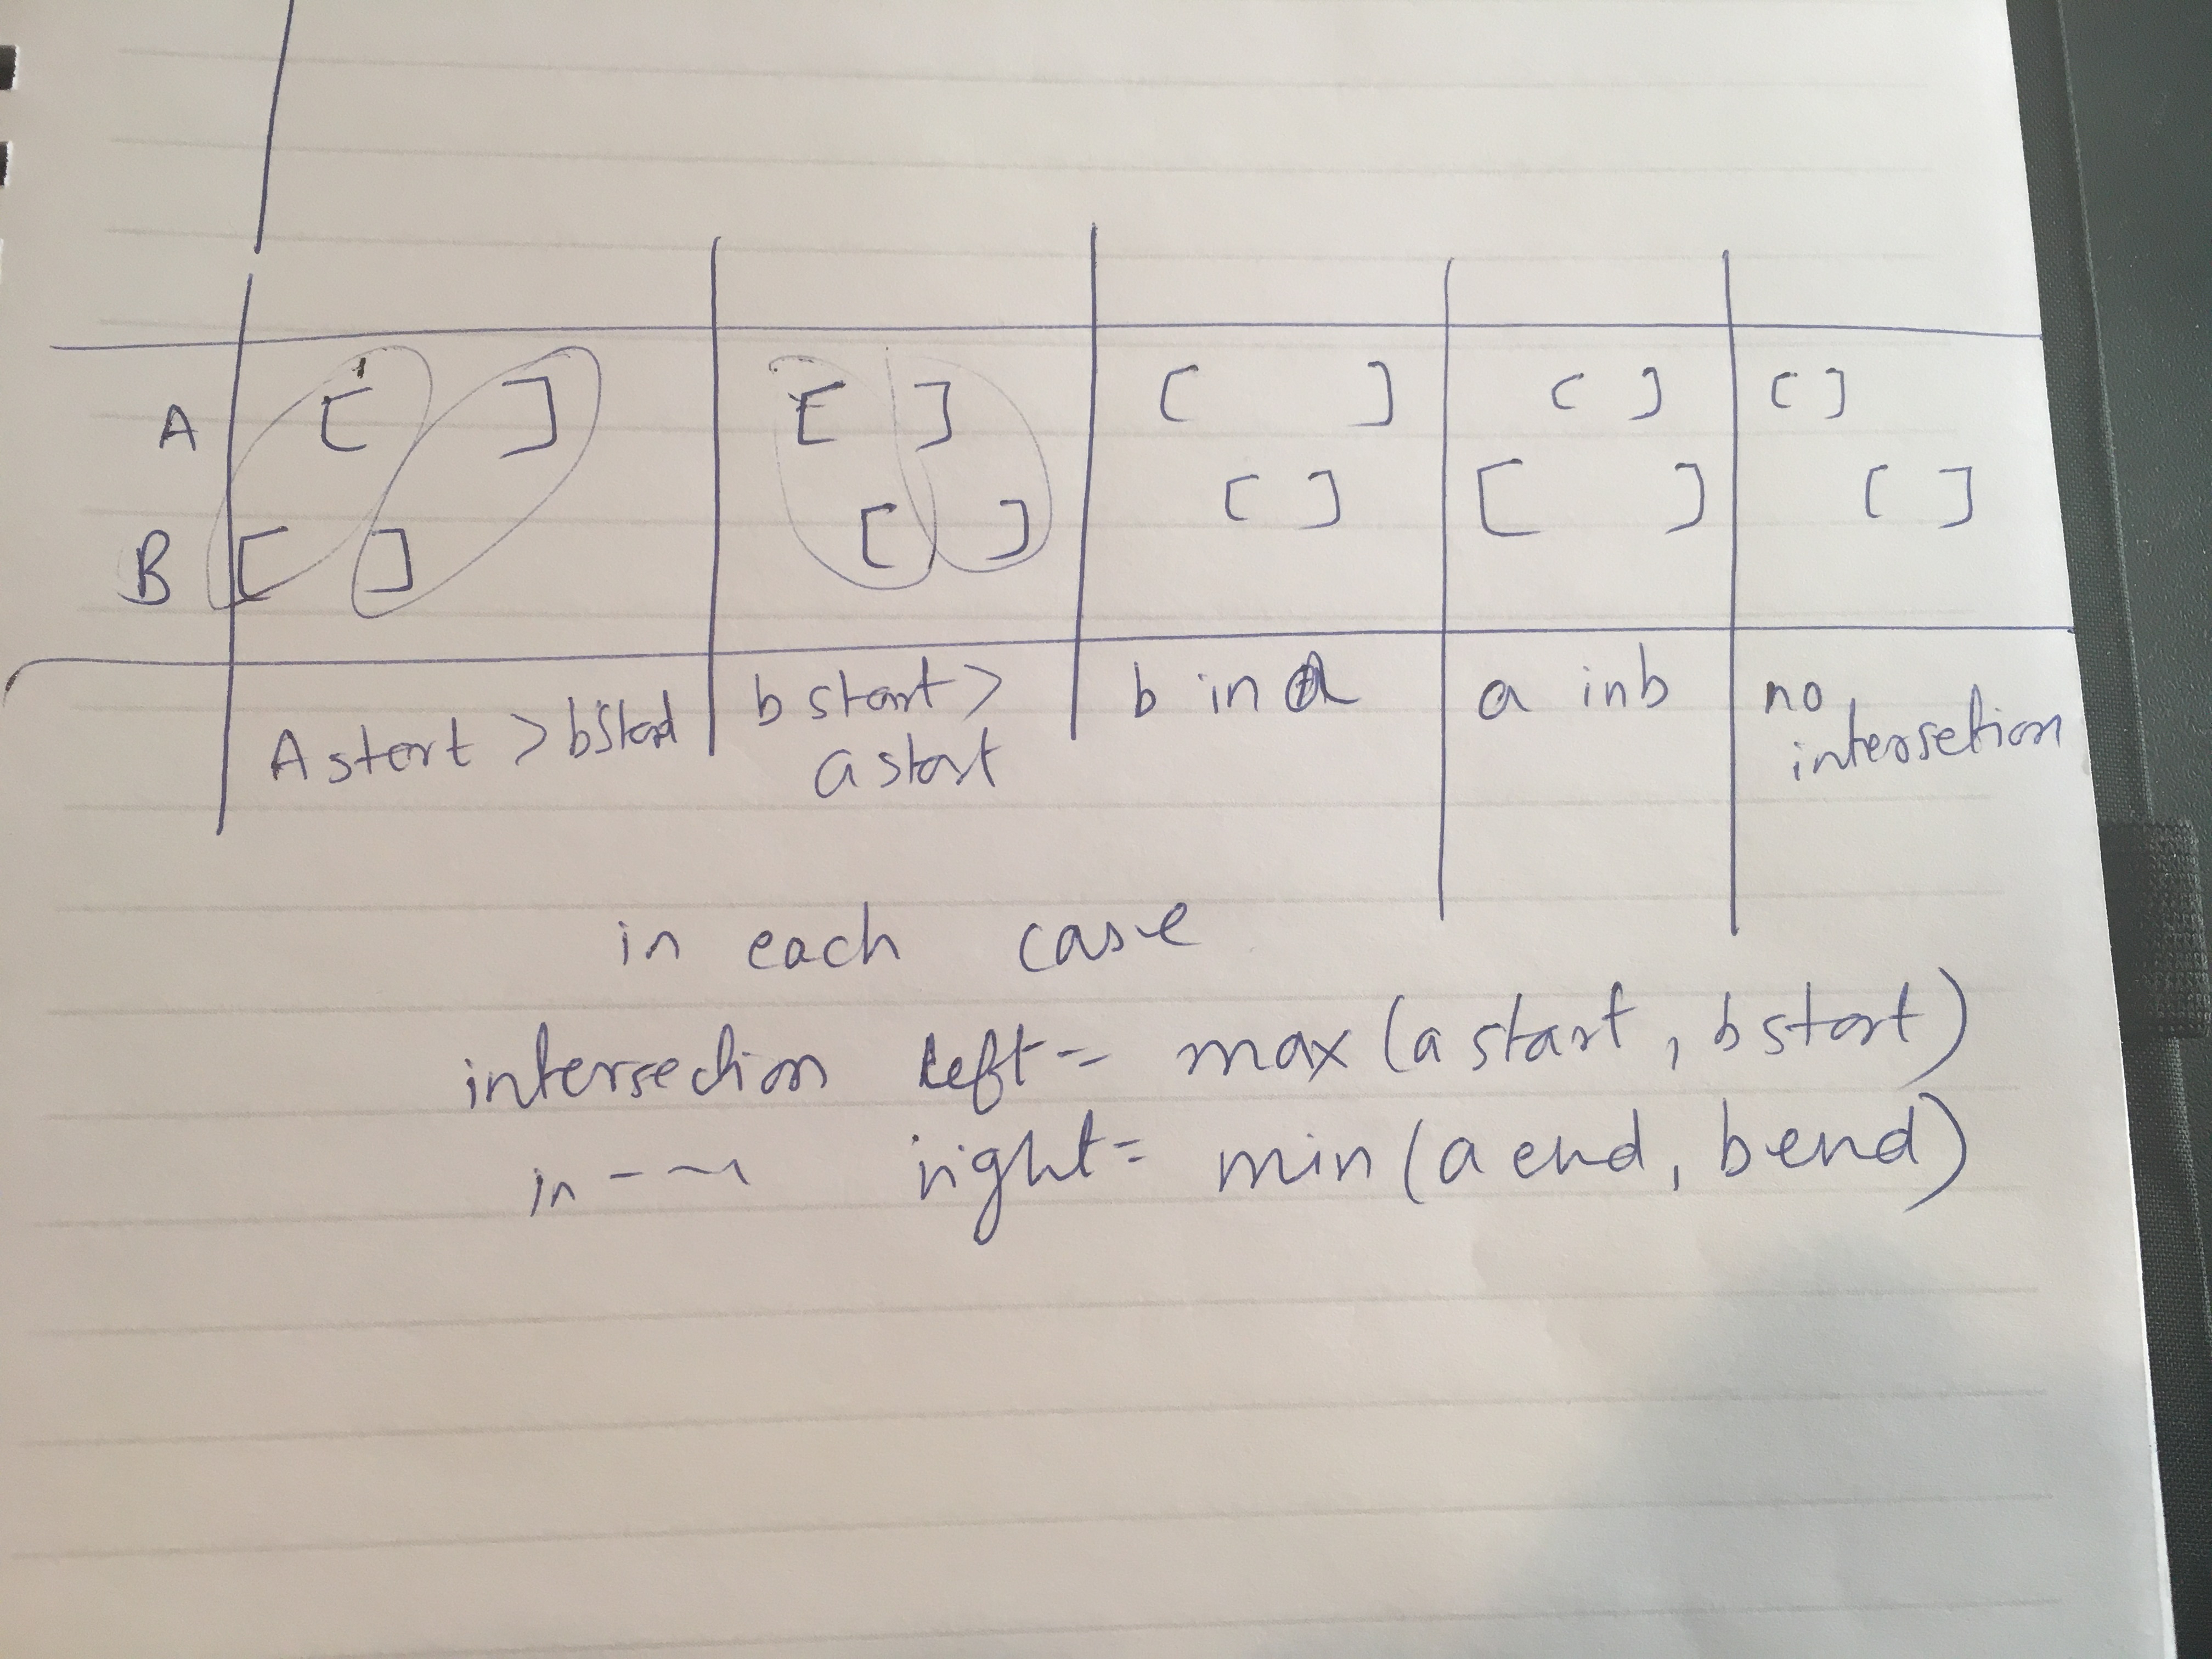 A [ ] [ ] [ ] [ ] [ ]
B [ ] [ ] [ ] [ ] [ ]
A start > b start b start > b in a a in b no
a start intersection
in each case
intersection left = max (a start, b start)
in - ~ right = min (a end, b end)